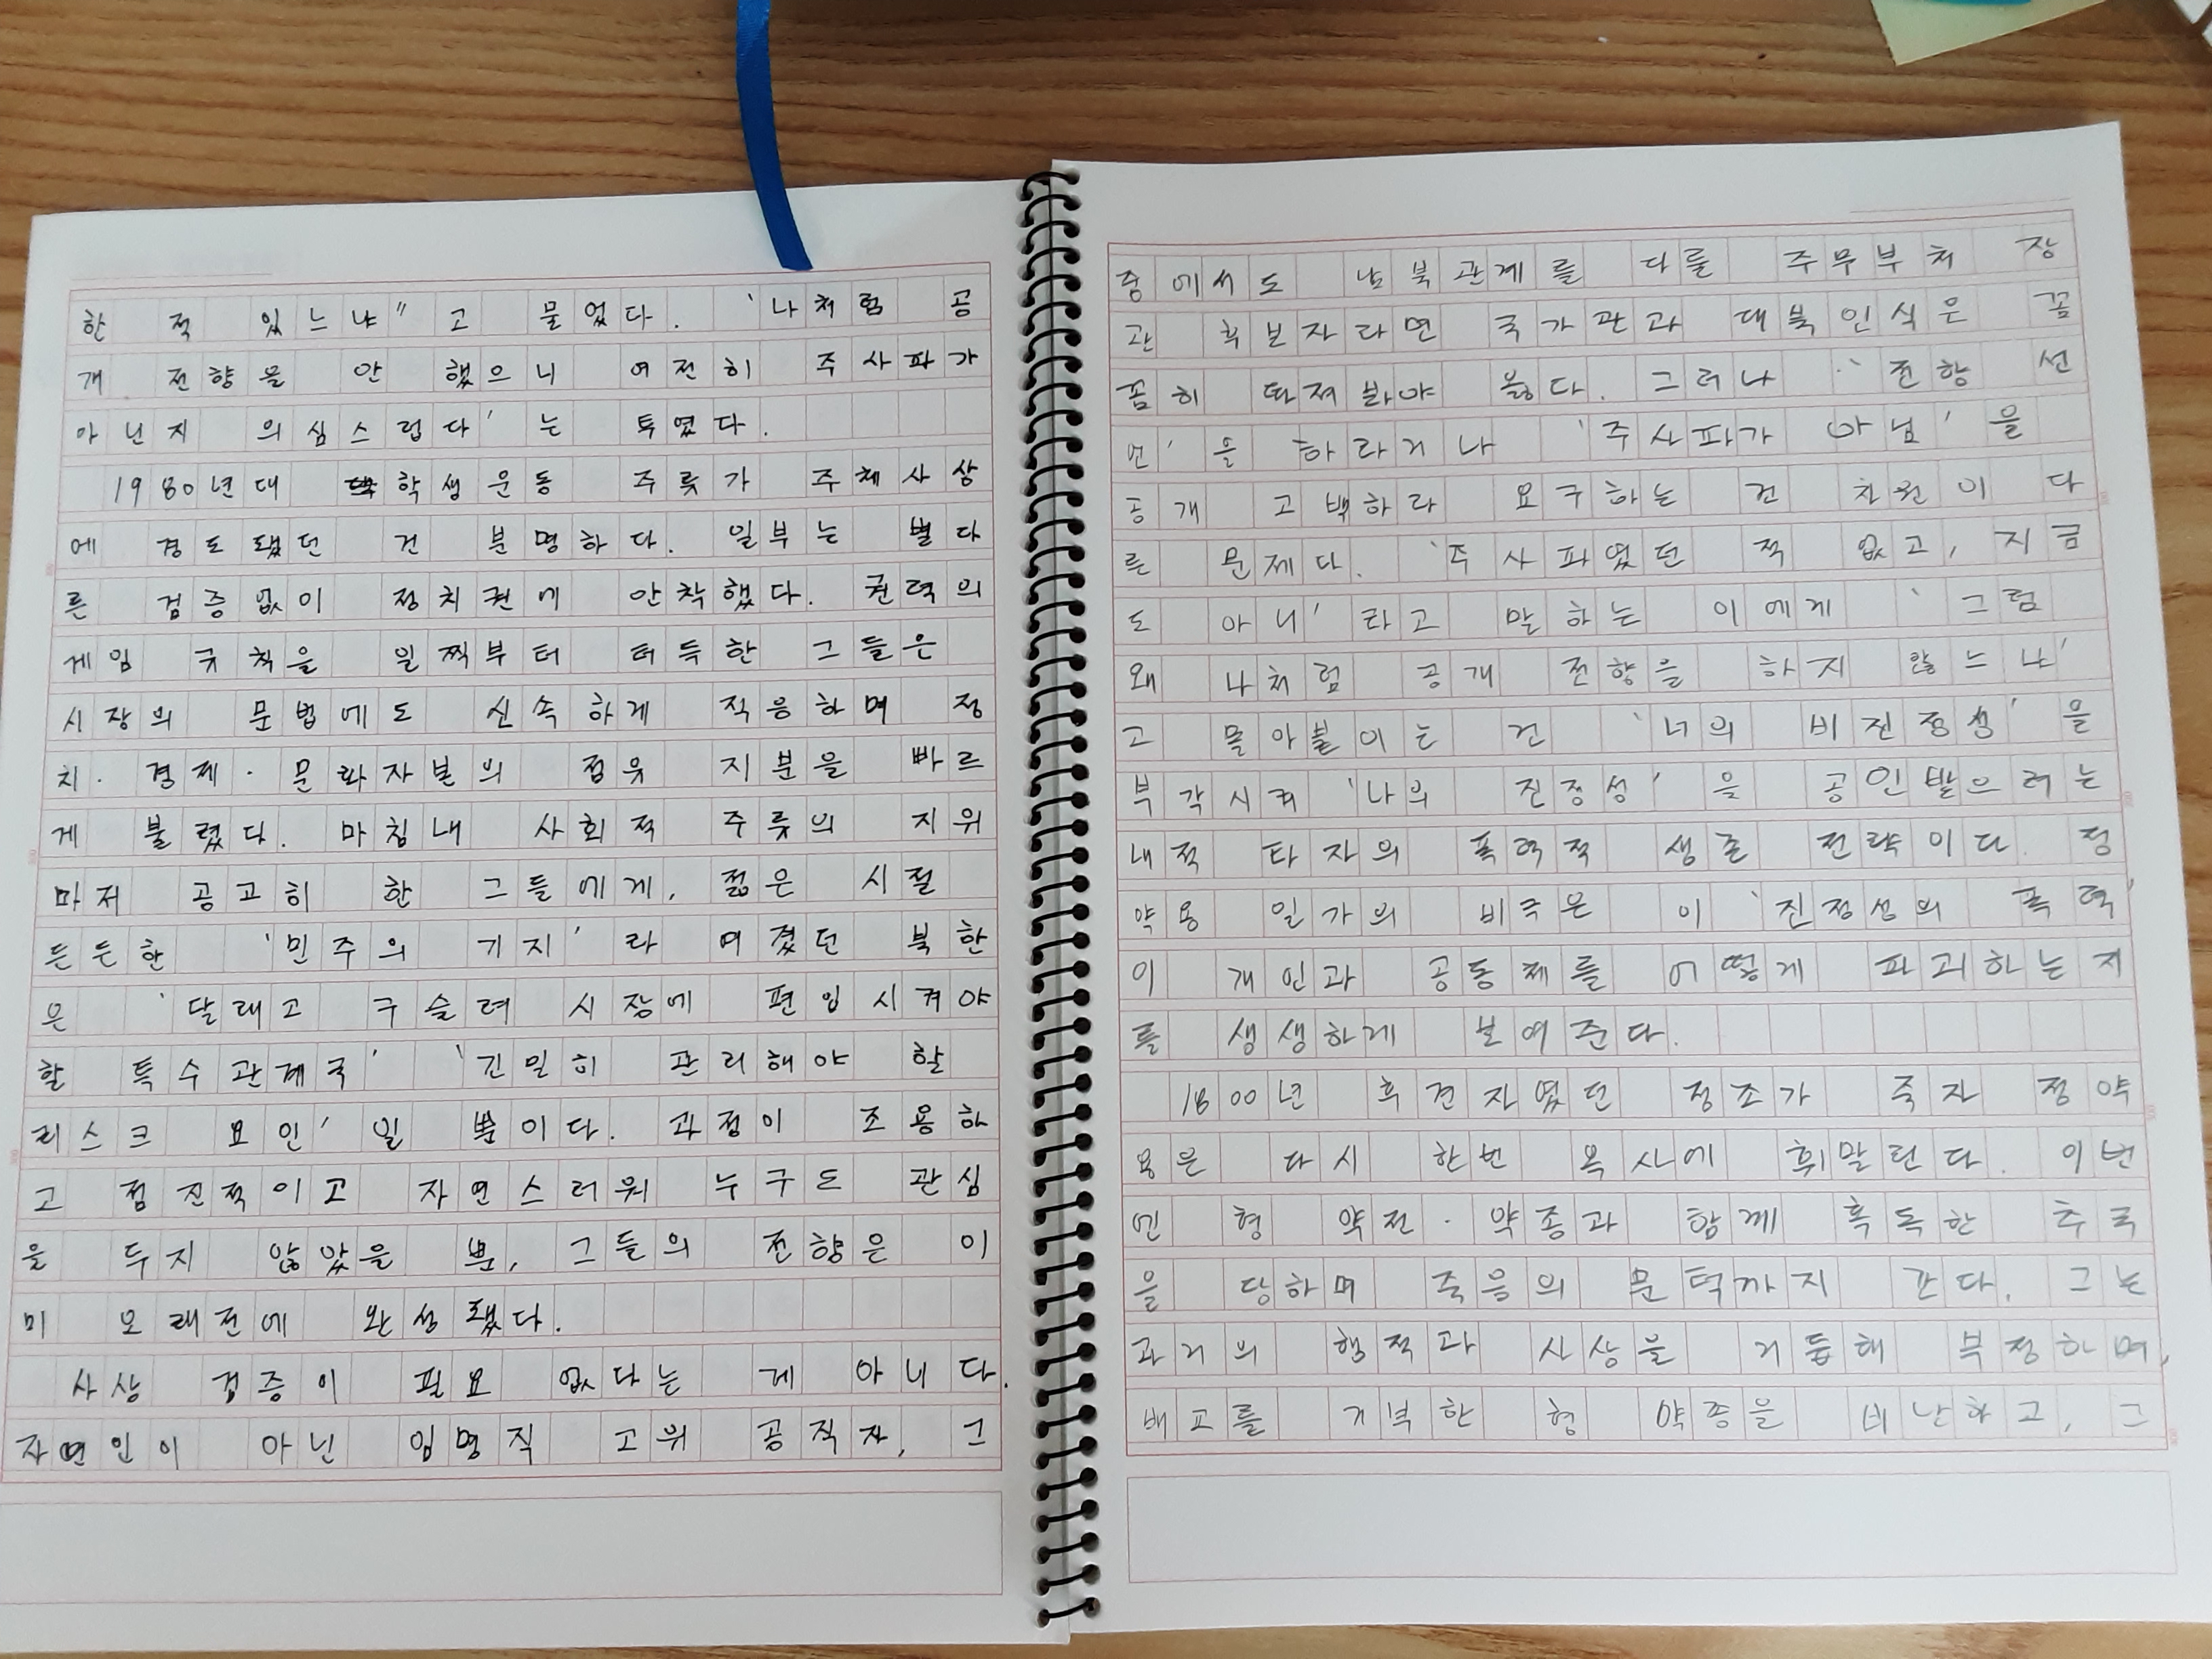 한 적 있느냐" 고 물었다. '나처럼 공
개 전향을 안 했으니 여전히 주사파가
아닌지 의심스럽다' 는 투였다.
1980년대 학생운동 주류가 주체사상
에 경도됐던 건 분명하다. 일부는 별다
른 검증없이 정치권에 안착했다. 권력의
게임 규칙을 일찍부터 터득한 그들은
시장의 문법에도 신속하게 적응하며 정
치·경제·문화자본의 점유 지분을 빠르
게 불렸다. 마침내 사회적 주류의 지위
마저 공고히 한 그들에게, 젊은 시절
든든한 '민주의 기지' 라 여겼던 북한
은 '달래고 구슬려 시장에 편입시켜야
할 특수관계국' '긴밀히 관리해야 할
리스크 요인' 일 뿐이다. 과정이 조용하
고 점진적이고 자연스러워 누구도 관심
을 두지 않았을 뿐, 그들의 전향은 이
미 오래전에 완성됐다.
사상 검증이 필요 없다는 게 아니다.
자연인이 아닌 임명직 고위 공직자, 그
중에서도 남북관계를 다룰 주무부처 장
관 후보자라면 국가관과 대북인식은 꼼
꼼히 따져봐야 옳다. 그러나 '전향 선
언' 을 하라거나 '주사파가 아님' 을
공개 고백하라 요구하는 건 차원이 다
른 문제다. '주사파였던 적 없고, 지금
도 아니' 라고 말하는 이에게 '그럼
왜 나처럼 공개 전향을 하지 않느냐'
고 몰아붙이는 건 '너의 비진정성' 을
부각시켜 '나의 진정성' 을 공인받으려는
내적 타자의 폭력적 생존 전략이다. 정
약용 일가의 비극은 이 '진정성의 폭력'
이 개인과 공동체를 어떻게 파괴하는지
를 생생하게 보여준다.
1800년 후견자였던 정조가 죽자 정약
용은 다시 한번 옥사에 휘말린다. 이번
엔 형 약전·약종과 함께 혹독한 추국
을 당하며 죽음의 문턱까지 간다. 그는
과거의 행적과 사상을 거듭해 부정하며,
배교를 거부한 형 약종을 비난하고, 그